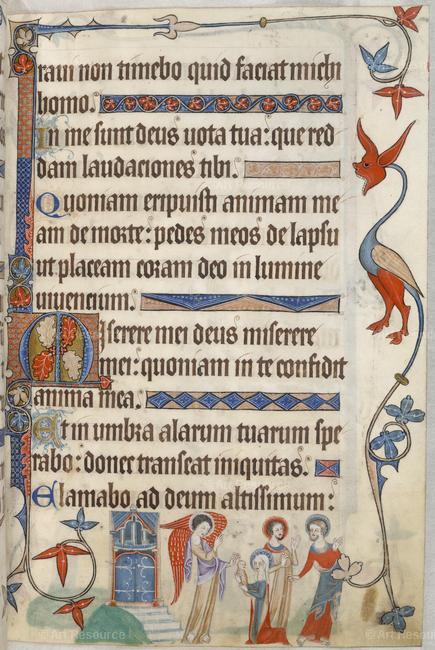 raui non timebo quid faciat michi
homo.
In me sunt deus uota tua: que red
dam laudaciones tibi.
Quoniam eripuisti animam me
am de morte: pedes meos de lapsu
ut placeam coram deo in lumine
uiuencium.
Miserere mei deus miserere
mei: quoniam in te confidit
anima mea.
Et in umbra alarum tuarum spe
rabo: donec transeat iniquitas.
Clamabo ad deum altissimum:
© Art Resource
© Art Resource